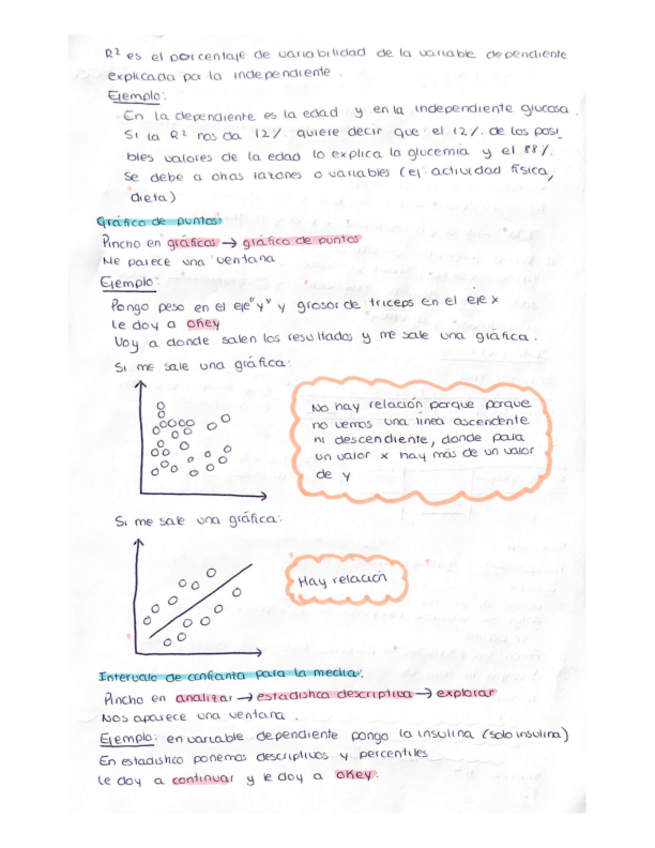 R² es el porcentaje de variabilidad de la variable dependiente
explicada por la independiente.
Ejemplo:
En la dependiente es la edad y en la independiente glucosa.
Si la R² nos da 12%. quiere decir que el 12%. de los posi_
bles valores de la edad lo explica la glucemia y el 88%.
se debe a otras razones o variables (ej: actividad física,
dieta)
Gráfico de puntos:
Pincho en gráficos → gráfico de puntos
Me parece una ventana
Ejemplo:
Pongo peso en el eje "y" y grosor de triceps en el eje x
Le doy a okey
Voy a donde salen los resultados y me sale una gráfica.
Si me sale una gráfica:
No hay relación porque porque
no vemos una linea ascendente
ni descendiente, donde para
un valor x hay más de un valor
de y
Si me sale una gráfica:
Hay relación
Intervalo de confianta para la media:
Pincho en analizar → estadishca descriptiva → explorar
Nos aparece una ventana.
Ejemplo: en variable dependiente pongo la insulina (solo insulina)
En estadishco ponemos descriptivos y percentiles
Le doy a continuar y le doy a okey.